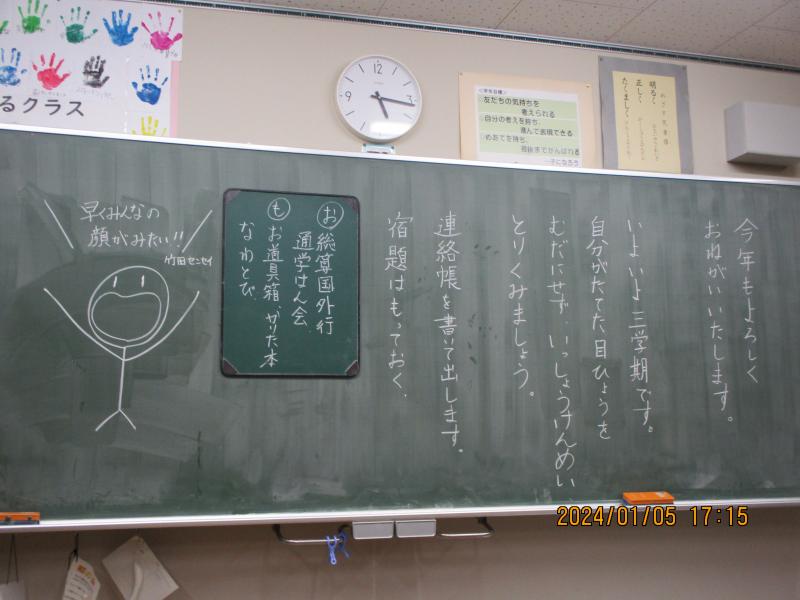 今年もよろしく
おねがいいたします。
いよいよ三学期です。
自分がたてた目ひょうを
むだにせず、いっしょうけんめい
とりくみましょう。
連絡帳を書いて出します。
宿題はもっておく。
お 総算国外行
通学はん会
も お道具箱 かりた本
なわとび
早くみんなの
顔がみたい!!
竹田センセイ
るクラス
12
3
9
友だちの気持ちを
考えられる
自分の考えを持ち、
進んで表現できる
めあてを持ち、
最後までがんばれる
明るく
正しく
たくましく
2024/01/05 17:15